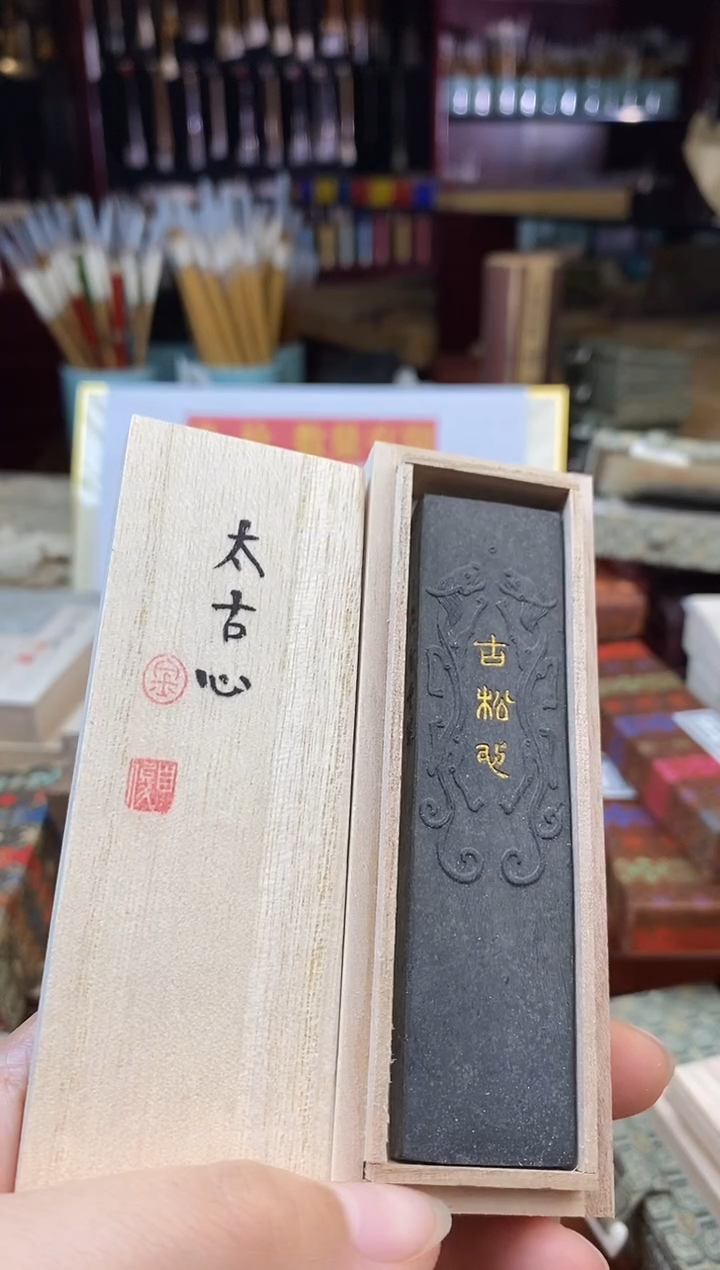 太古心
古松心